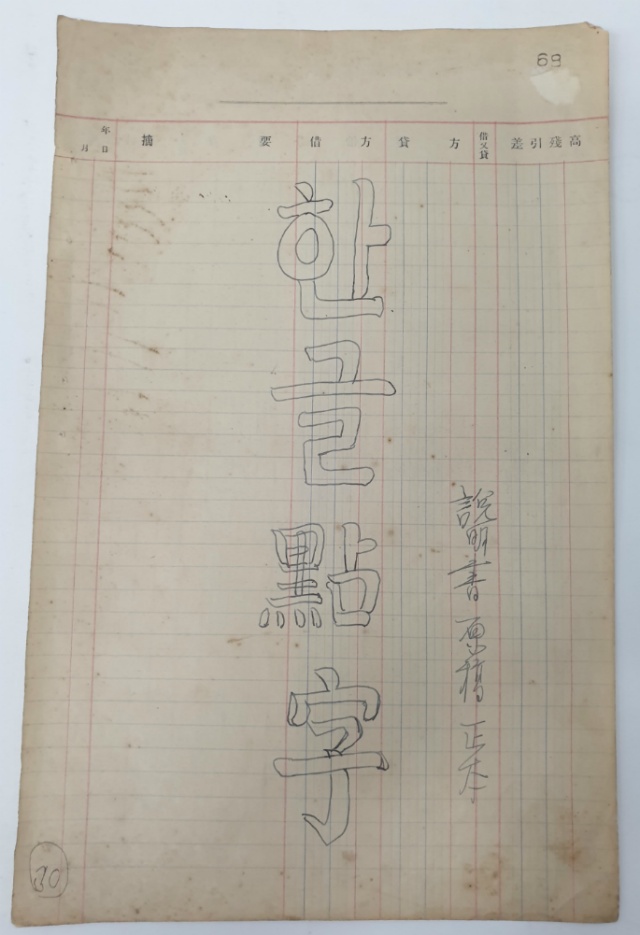 69
年 月 日 摘 要 借方 貸方 借又貸 差引残高
한글點字
說明書 原稿 正本
30